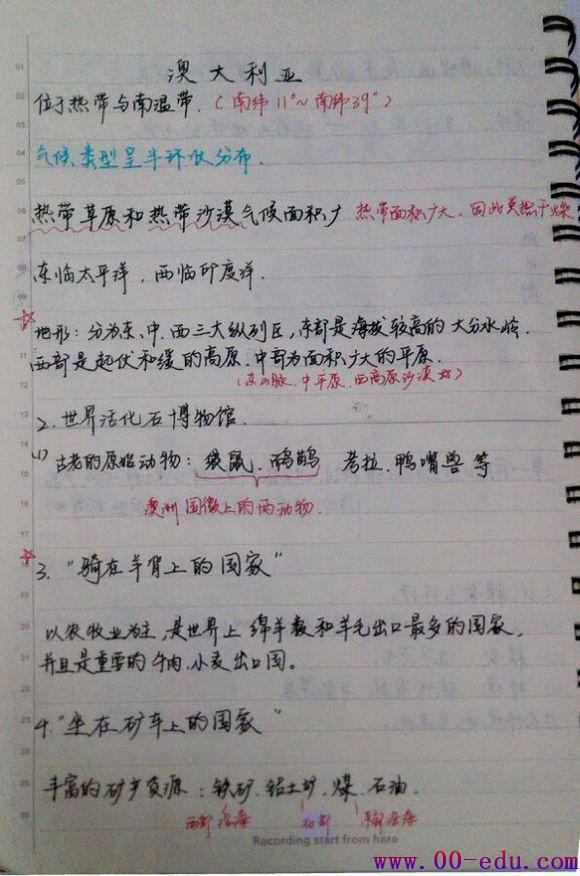 澳大利亚
位于热带与南温带.（南纬11°~南纬39°）
气候类型呈半环状分布.
热带草原和热带沙漠气候面积广 热带面积广大.因此炎热干燥
东临太平洋，西临印度洋.
地形：分为东、中、西三大纵列区，东部是海拔较高的大分水岭.
西部是起伏和缓的高原.中部为面积广大的平原.
（东山脉.中平原.西高原沙漠）
2.世界活化石博物馆.
(1) 古老的原始动物：袋鼠.鸸鹋 考拉.鸭嘴兽等
澳洲国徽上的两动物.
3."骑在羊背上的国家"
以农牧业为主,是世界上绵羊数和羊毛出口最多的国家，
并且是重要的牛肉.小麦出口国。
4."坐在矿车上的国家"
丰富的矿产资源：铁矿.铝土矿.煤.石油.
西部沿海 北部 东部沿海
Recording start from here
www.00-edu.com